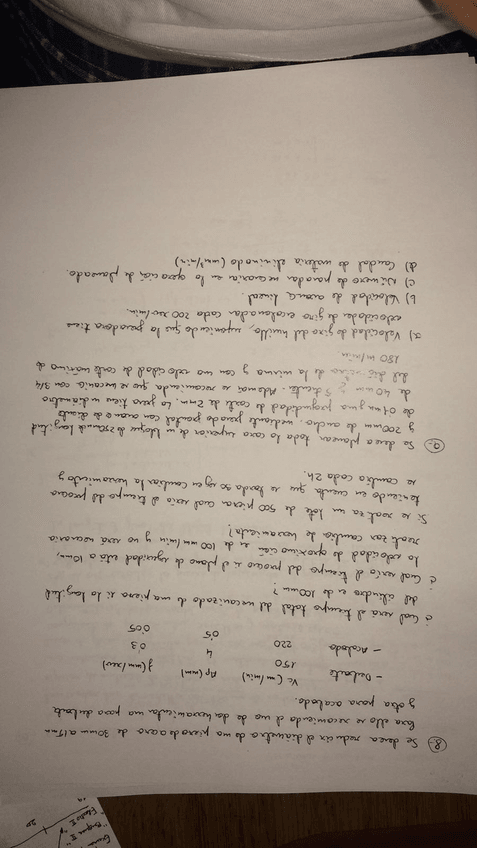 ⑧ Se desea reducir el diámetro de una pieza de acero de 30mm a 15mm
Para ello se recomienda el uso de dos herramientas, una para desbaste
y otra para acabado.
Vc (m/min) Ap (mm) f (mm/rev)
- Desbaste 150 4 0'3
- Acabado 220 0'5 0'05
¿Cual será el tiempo total del mecanizado de una pieza si la longitud
del cilindro es de 100mm?
¿Cual sería el tiempo del proceso si el plano de seguridad está a 10mm,
la velocidad de aproximación es de 100 mm/min y no será necesario
realizar cambio de herramienta?
Si se realiza un lote de 500 piezas cual sería el tiempo del proceso
teniendo en cuenta que se tarda 30 sg en cambiar la herramienta y
se cambia cada 2h.
⑨ Se desea planear toda la cara superior de un bloque de 250mm de longitud
y 200mm de ancho, mediante fresado frontal con avance de diente
de 0'1 mm y una profundidad de corte de 2mm. La fresa tiene un diámetro
de 40mm y 5 dientes. Además se recomienda que se mecanice con 3/4
del diámetro de la misma y con una velocidad de corte máxima de
180 m/min.
a) Velocidad de giro del husillo, suponiendo que la fresadora tiene
velocidades de giro escalonadas cada 200 rev/min.
b) Velocidad de avance lineal.
c) Número de pasadas necesaria en la operación de planeado.
d) Caudal de materia eliminado (mm³/min)
20